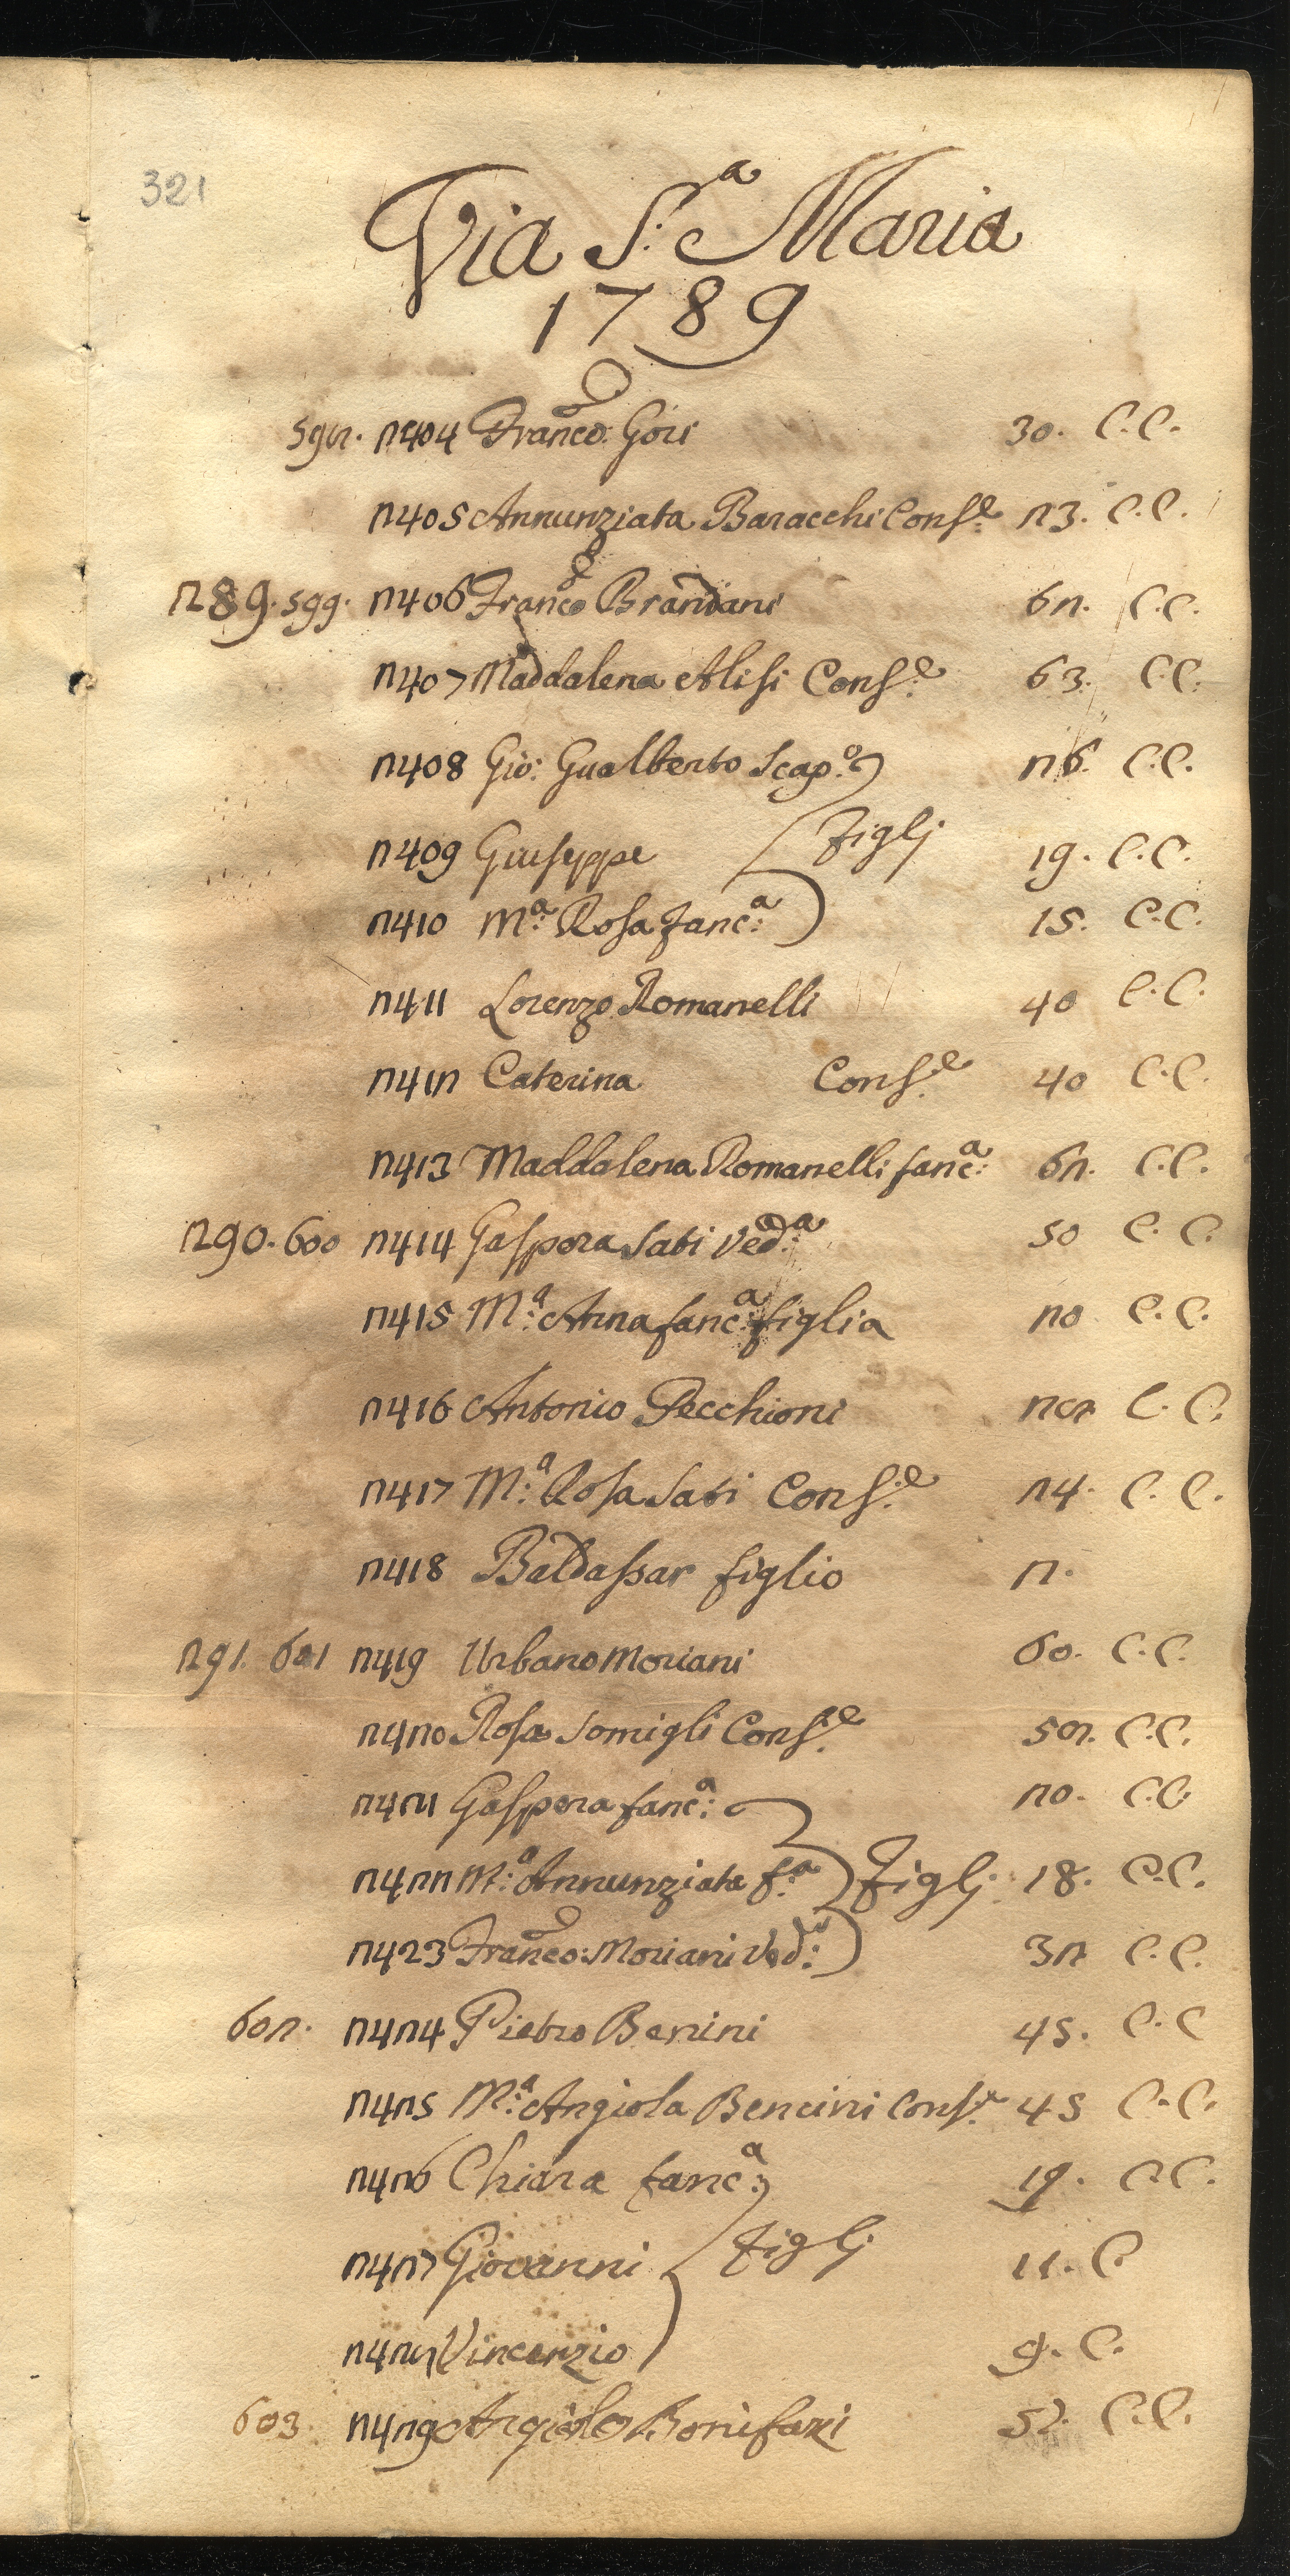 321
Via S.ª Maria
1789
598. 2404 Franc.o Gori 30. C.C.
2405 Annunziata Baracchi Cons.e 23. C.C.
289. 599. 2406 Franc.o Brandani 62. C.C.
2407 Maddalena Alisi Cons.e 63. C.C.
2408 Gio: Gualberto Scap.o 26. C.C.
2409 Giuseppe Figlj 19. C.C.
2410 M.ª Rosa fanc.ª 15. C.C.
2411 Lorenzo Romanelli 40 C.C.
2412 Caterina Cons.e 40 C.C.
2413 Maddalena Romanelli fanc.ª 62. C.C.
290. 600 2414 Gaspera Sati Ved.ª 50 C.C.
2415 M.ª Anna fanc.ª figlia 20 C.C.
2416 Antonio Pecchioni 28 C.C.
2417 M.ª Rosa Sati Cons.e 24. C.C.
2418 Baldassar figlio 2.
291. 601 2419 Urbano Moriani 60. C.C.
2420 Rosa Somigli Cons.e 52. C.C.
2421 Gaspera fanc.ª 20. C.C.
2422 M.ª Annunziata f.ª Figlj 18. C.C.
2423 Franc.o: Moriani Ved.o 32 C.C.
602. 2424 Pietro Benini 45. C.C
2425 M.ª Angiola Bencini Cons.e 45 C.C.
2426 Chiara fanc.ª 19. C.C.
2427 Giovanni Figlj 11. C.
2428 Vincenzio 9. C.
603. 2429 Angiolo Bonifazi 52. C.C.